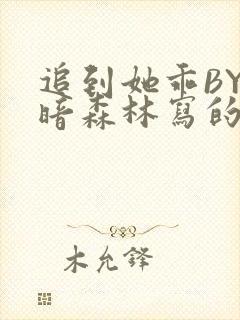 追到她乖BY
暗森林寫的
木允鋒